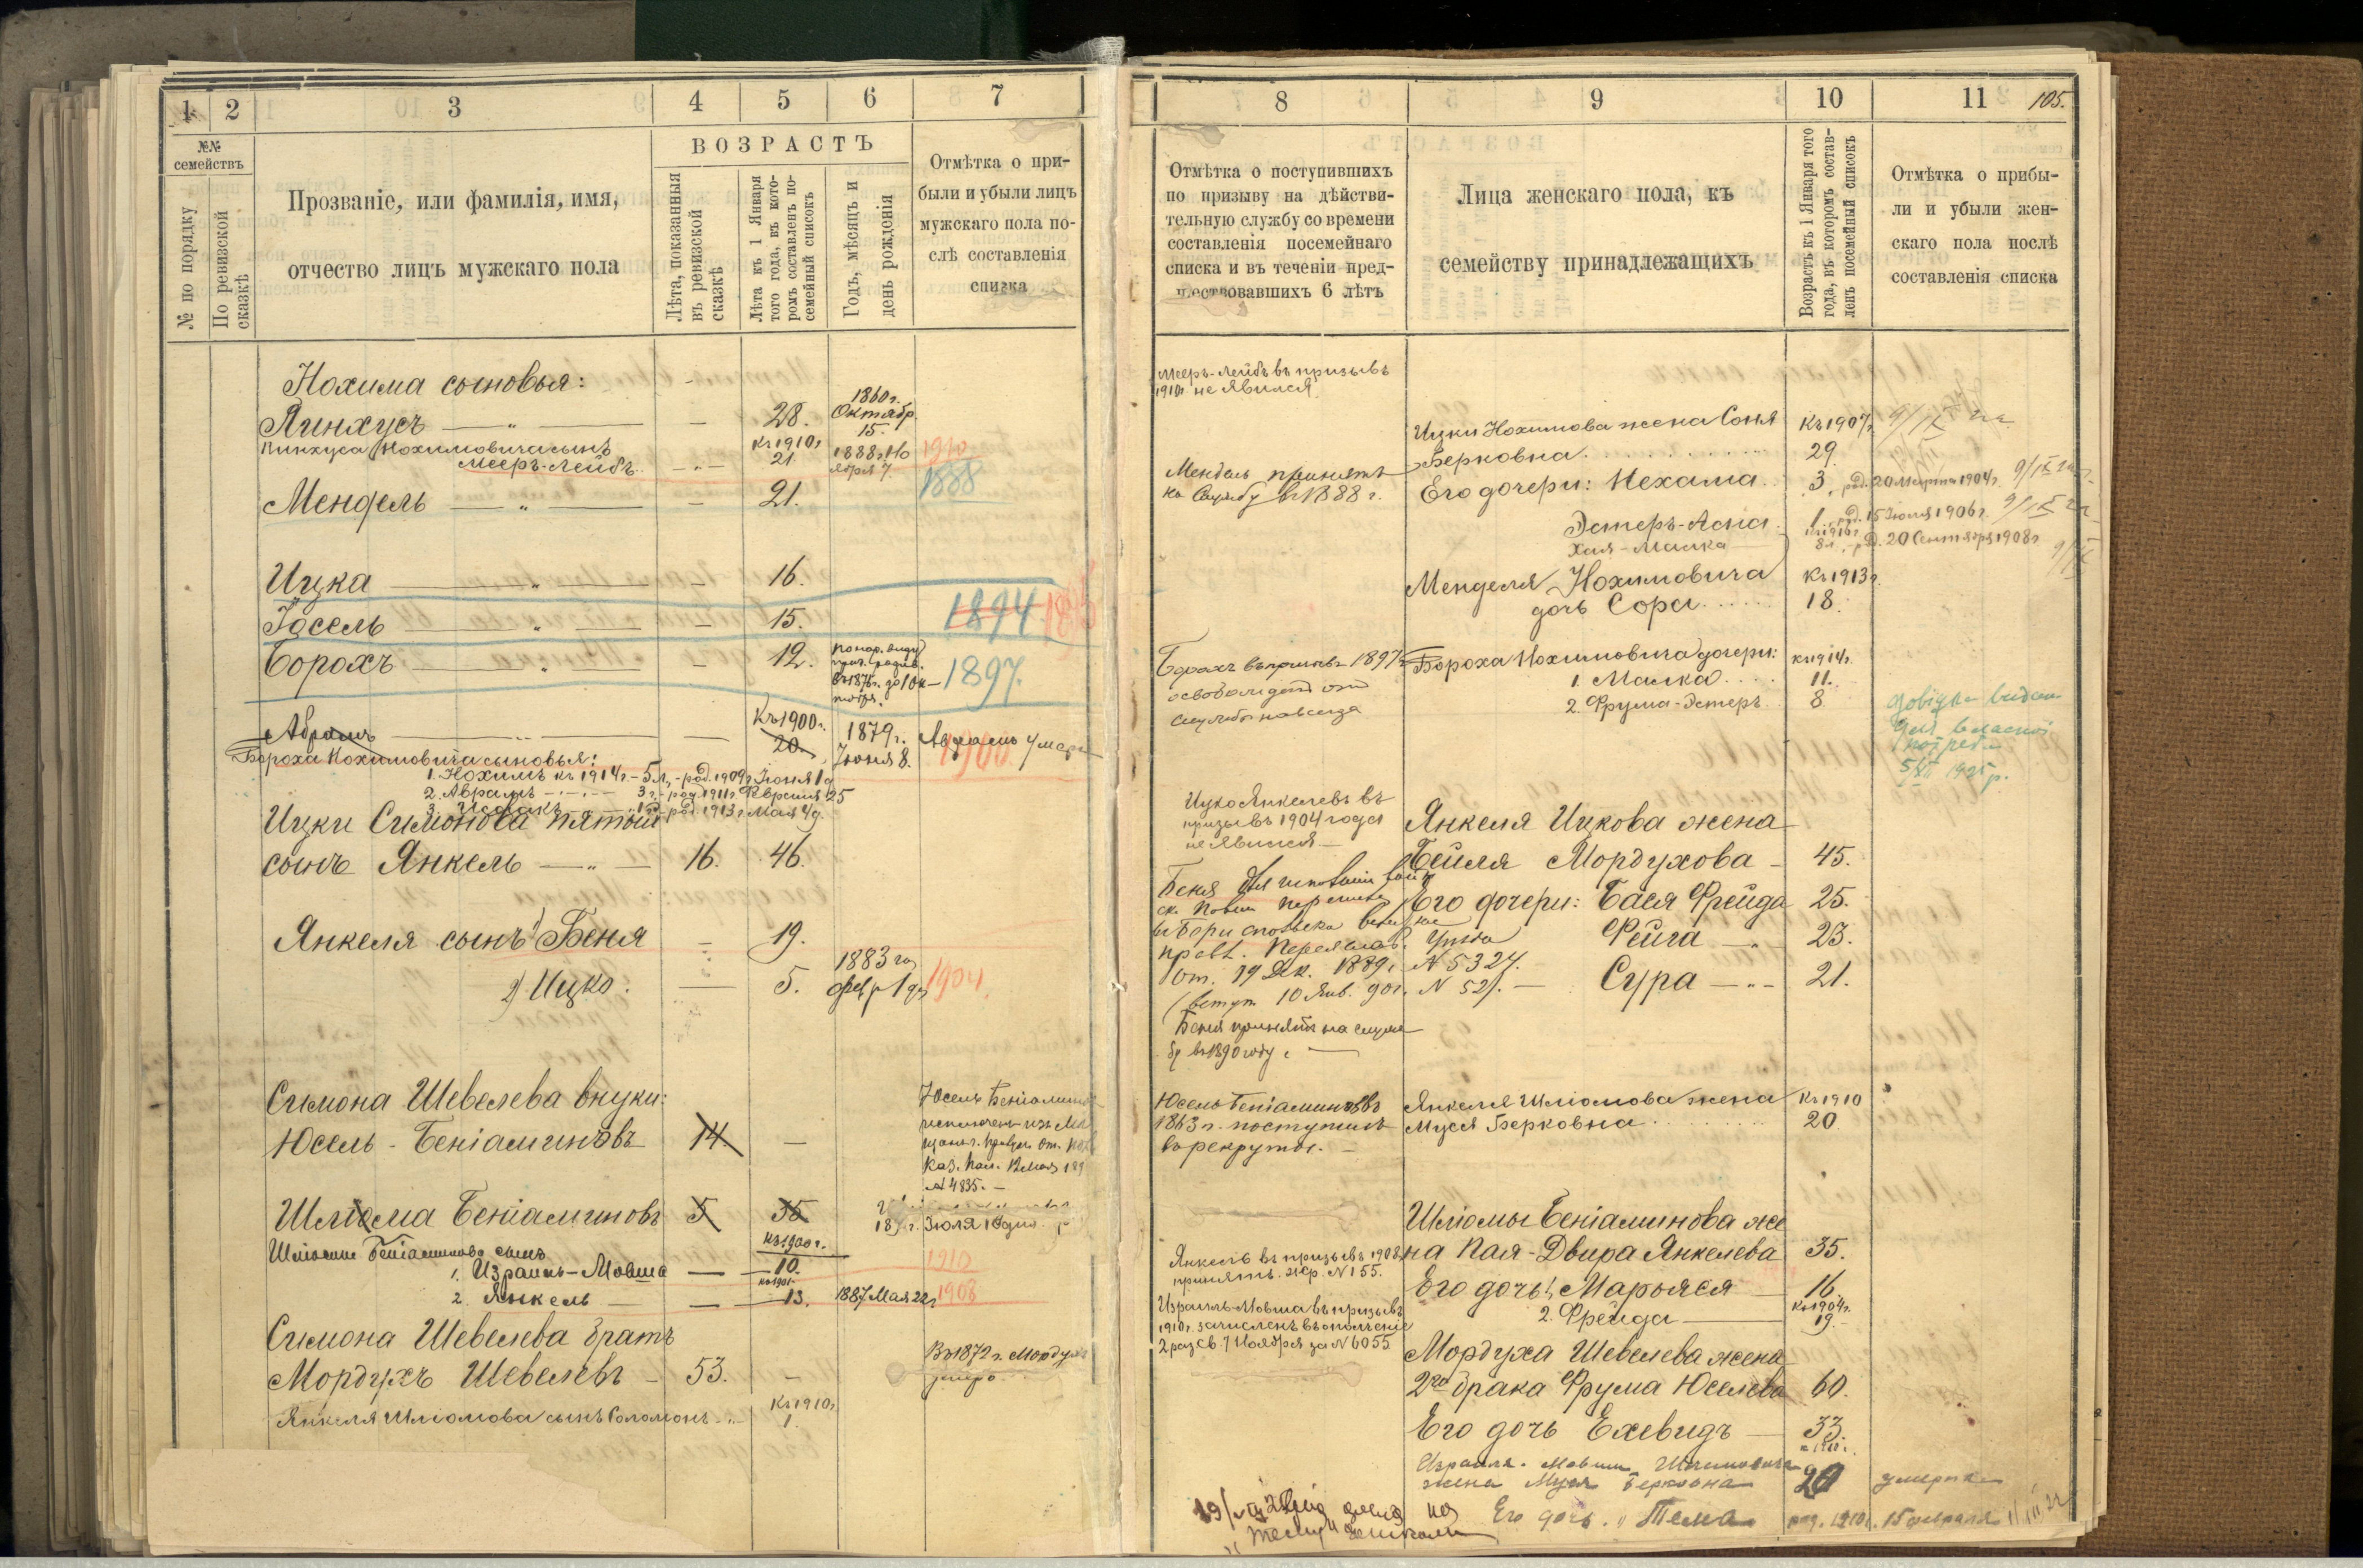 1 2 3 4 5 6 7
№№ семействъ
№ по порядку
По ревизской сказкѣ
Прозваніе, или фамилія, имя,
отчество лицъ мужскаго пола
ВОЗРАСТЪ
Лѣта, показанныя
въ ревизской
сказкѣ
Лѣта къ 1 Января
того года, въ кото-
ромъ составленъ по-
семейный списокъ
Годъ, мѣсяцъ и
день рожденія
Отмѣтка о при-
были и убыли лицъ
мужскаго пола по-
слѣ составленія
списка
Нохима сыновья:
Пинхусъ — 28. 1860 г. Октябр. 15.
Пинхуса Нохимовича сынъ
Мееръ-Лейбъ. Къ 1910 г. 21. 1888 г. Но
ября 7. 1910
Мендель — 21. 1888
Ицка — 16.
Іосель — 15. 1894
Борохъ — 12. 1897.
Абрамъ — Къ 1900 г. 20. 1879 г. Іюня 8. Абрамъ умеръ 1900
Бороха Нохимовича сыновья:
1. Нохимъ къ 1914 г. - 5 л. - род. 1909 г. Іюня 1 д.
2. Абрамъ 3 г. - род. 1911 г. Февраля 25
3. Исаакъ 1 г. род. 1913 г. Мая 4 д.
Ицки Симонова пятый
сынъ Янкель — 16. 46.
Янкеля сынъ 1) Беня — 19.
2) Ицко. — 5. 1883 го фев р 1 дн 1904.
Симона Шевелева внуки:
Юсель - Беніаминовъ 14. —
Юсель Беніаминов
исключенъ изъ
Каз. Пал.
№ 4835. —
Шліома Беніаминовъ 5 35
Іюля 10 дня
Шліомы Беніаминова сынъ Къ 1900 г.
1. Израиль-Мовша — 10. 1910
2. Янкель — 13. 1887 Мая 22 г. 1908
Симона Шевелева братъ
Мордухъ Шевелевъ - 53. — Въ 1872 г. Мордухъ
умеръ
Янкеля Шліомова сынъ Соломонъ Къ 1910 г. 1.
8 9 10 11 105.
Отмѣтка о поступившихъ
по призыву на дѣйстви-
тельную службу со времени
составленія посемейнаго
списка и въ теченіи пред-
шествовавшихъ 6 лѣтъ
Лица женскаго пола, къ
семейству принадлежащихъ
Возрастъ къ 1 Января того
года, въ которомъ состав-
ленъ посемейный списокъ
Отмѣтка о прибы-
ли и убыли жен-
скаго пола послѣ
составленія списка
Мееръ-Лейбъ въ призывъ
1910 г. не явился
Ицки Нохимова жена Соня Къ 1907 г.
Берковна 29
Мендель принятъ
на службу въ 1888 г.
Его дочери: Нехама 3, род. 20 Марта 1904 г.
Эстеръ-Асна 1, род. 15 Іюля 1906 г.
Хая-Малка Къ 1910 г. 8 л. род. 20 Сентября 1908 г.
Менделя Нохимовича Къ 1913 г.
дочь Сора 18.
Борохъ въ призывъ 1897 г.
освобожденъ отъ
службы навсегда
Бороха Нохимовича дочери: къ 1914 г.
1. Малка 11.
2. Фрума-Эстеръ 8
5/XII 1925 р.
Ицко Янкелевъ въ
призывъ 1904 года
не явился —
Янкеля Ицкова жена
Бейля Мордухова - 45.
Его дочери: Бася Фрейда 25.
Фейга 23.
Сура 21.
От. 19 Дек. 1889 г. № 5327.
Беня принятъ на служ
бу въ 1890 году. —
Юсель Беніаминовъ
1863 г. поступилъ
въ рекруты. —
Янкеля Шліомова жена Къ 1910
Муся Берковна 20.
Шліомы Беніаминова же
на Хая-Двира Янкелева 35.
Янкель въ призывъ 1908 г.
принятъ. жр. № 155.
Его дочь 1. Марьяся 16.
2. Фрейда Къ 1904 г. 19.
Израиль-Мовша въ призывъ
1910 г. зачисленъ въ ополченіе
2 раз св. 7 Ноября за № 6055
Мордуха Шевелева жена
2го брака Фрума Юселева 60.
Его дочь Ехевидъ — 33.
Израиля-Мовши Шліомовича
жена Муся Берковна 20 умерла
Его дочь Тема род. 1910 г. 15 февраля